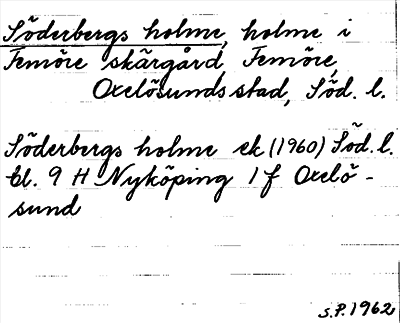 Söderbergs holme, holme i
Femöre skärgård, Femöre,
Oxelösunds stad, Söd. l.
Söderbergs holme ek (1960) Söd. l.
bl. 9 H Nyköping 1 f Oxelö-
sund
S.P. 1962